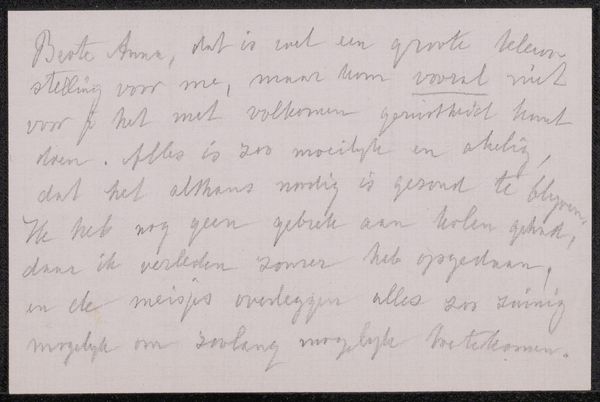 Beste Anna, dat is wel een groote teleur-
stelling voor me, maar kom vooral niet
voor je het met volkomen gerustheid kunt
doen. Alles is zoo moeilijk en akelig,
dat het althans nodig is gezond te blijven.
Ik heb nog geen gebrek aan kolen gehad,
daar ik verleden zomer heb opgedaan,
en de meisjes overleggen alles zoo zuinig
mogelijk om zoolang mogelijk toetekomen.